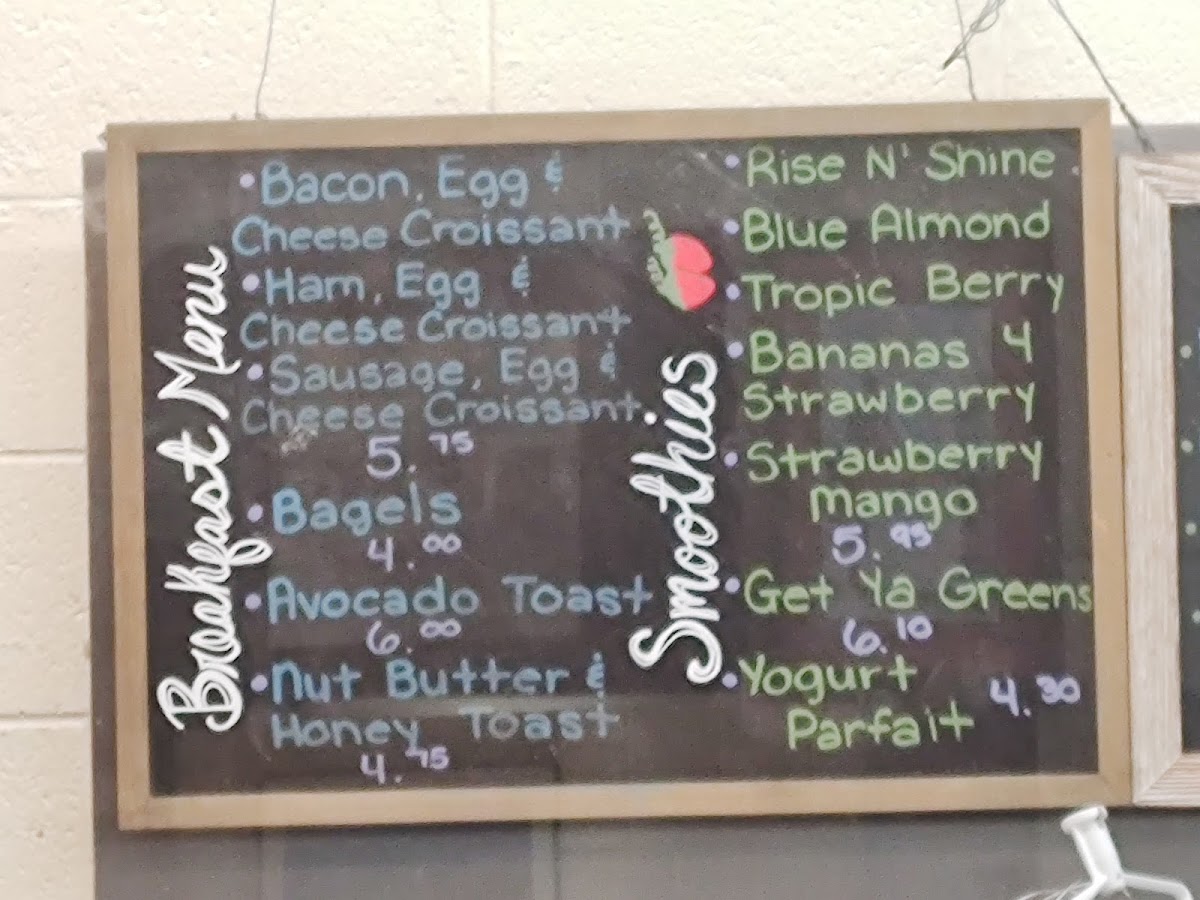 Breakfast Menu
•Bacon, Egg &
Cheese Croissant
•Ham, Egg &
Cheese Croissant
•Sausage, Egg &
Cheese Croissant
5.75
•Bagels
4.00
•Avocado Toast
6.00
•Nut Butter &
Honey Toast
4.75
Smoothies
•Rise N' Shine
•Blue Almond
•Tropic Berry
•Bananas 4
Strawberry
•Strawberry
Mango
5.95
•Get Ya Greens
6.10
•Yogurt
Parfait 4.30